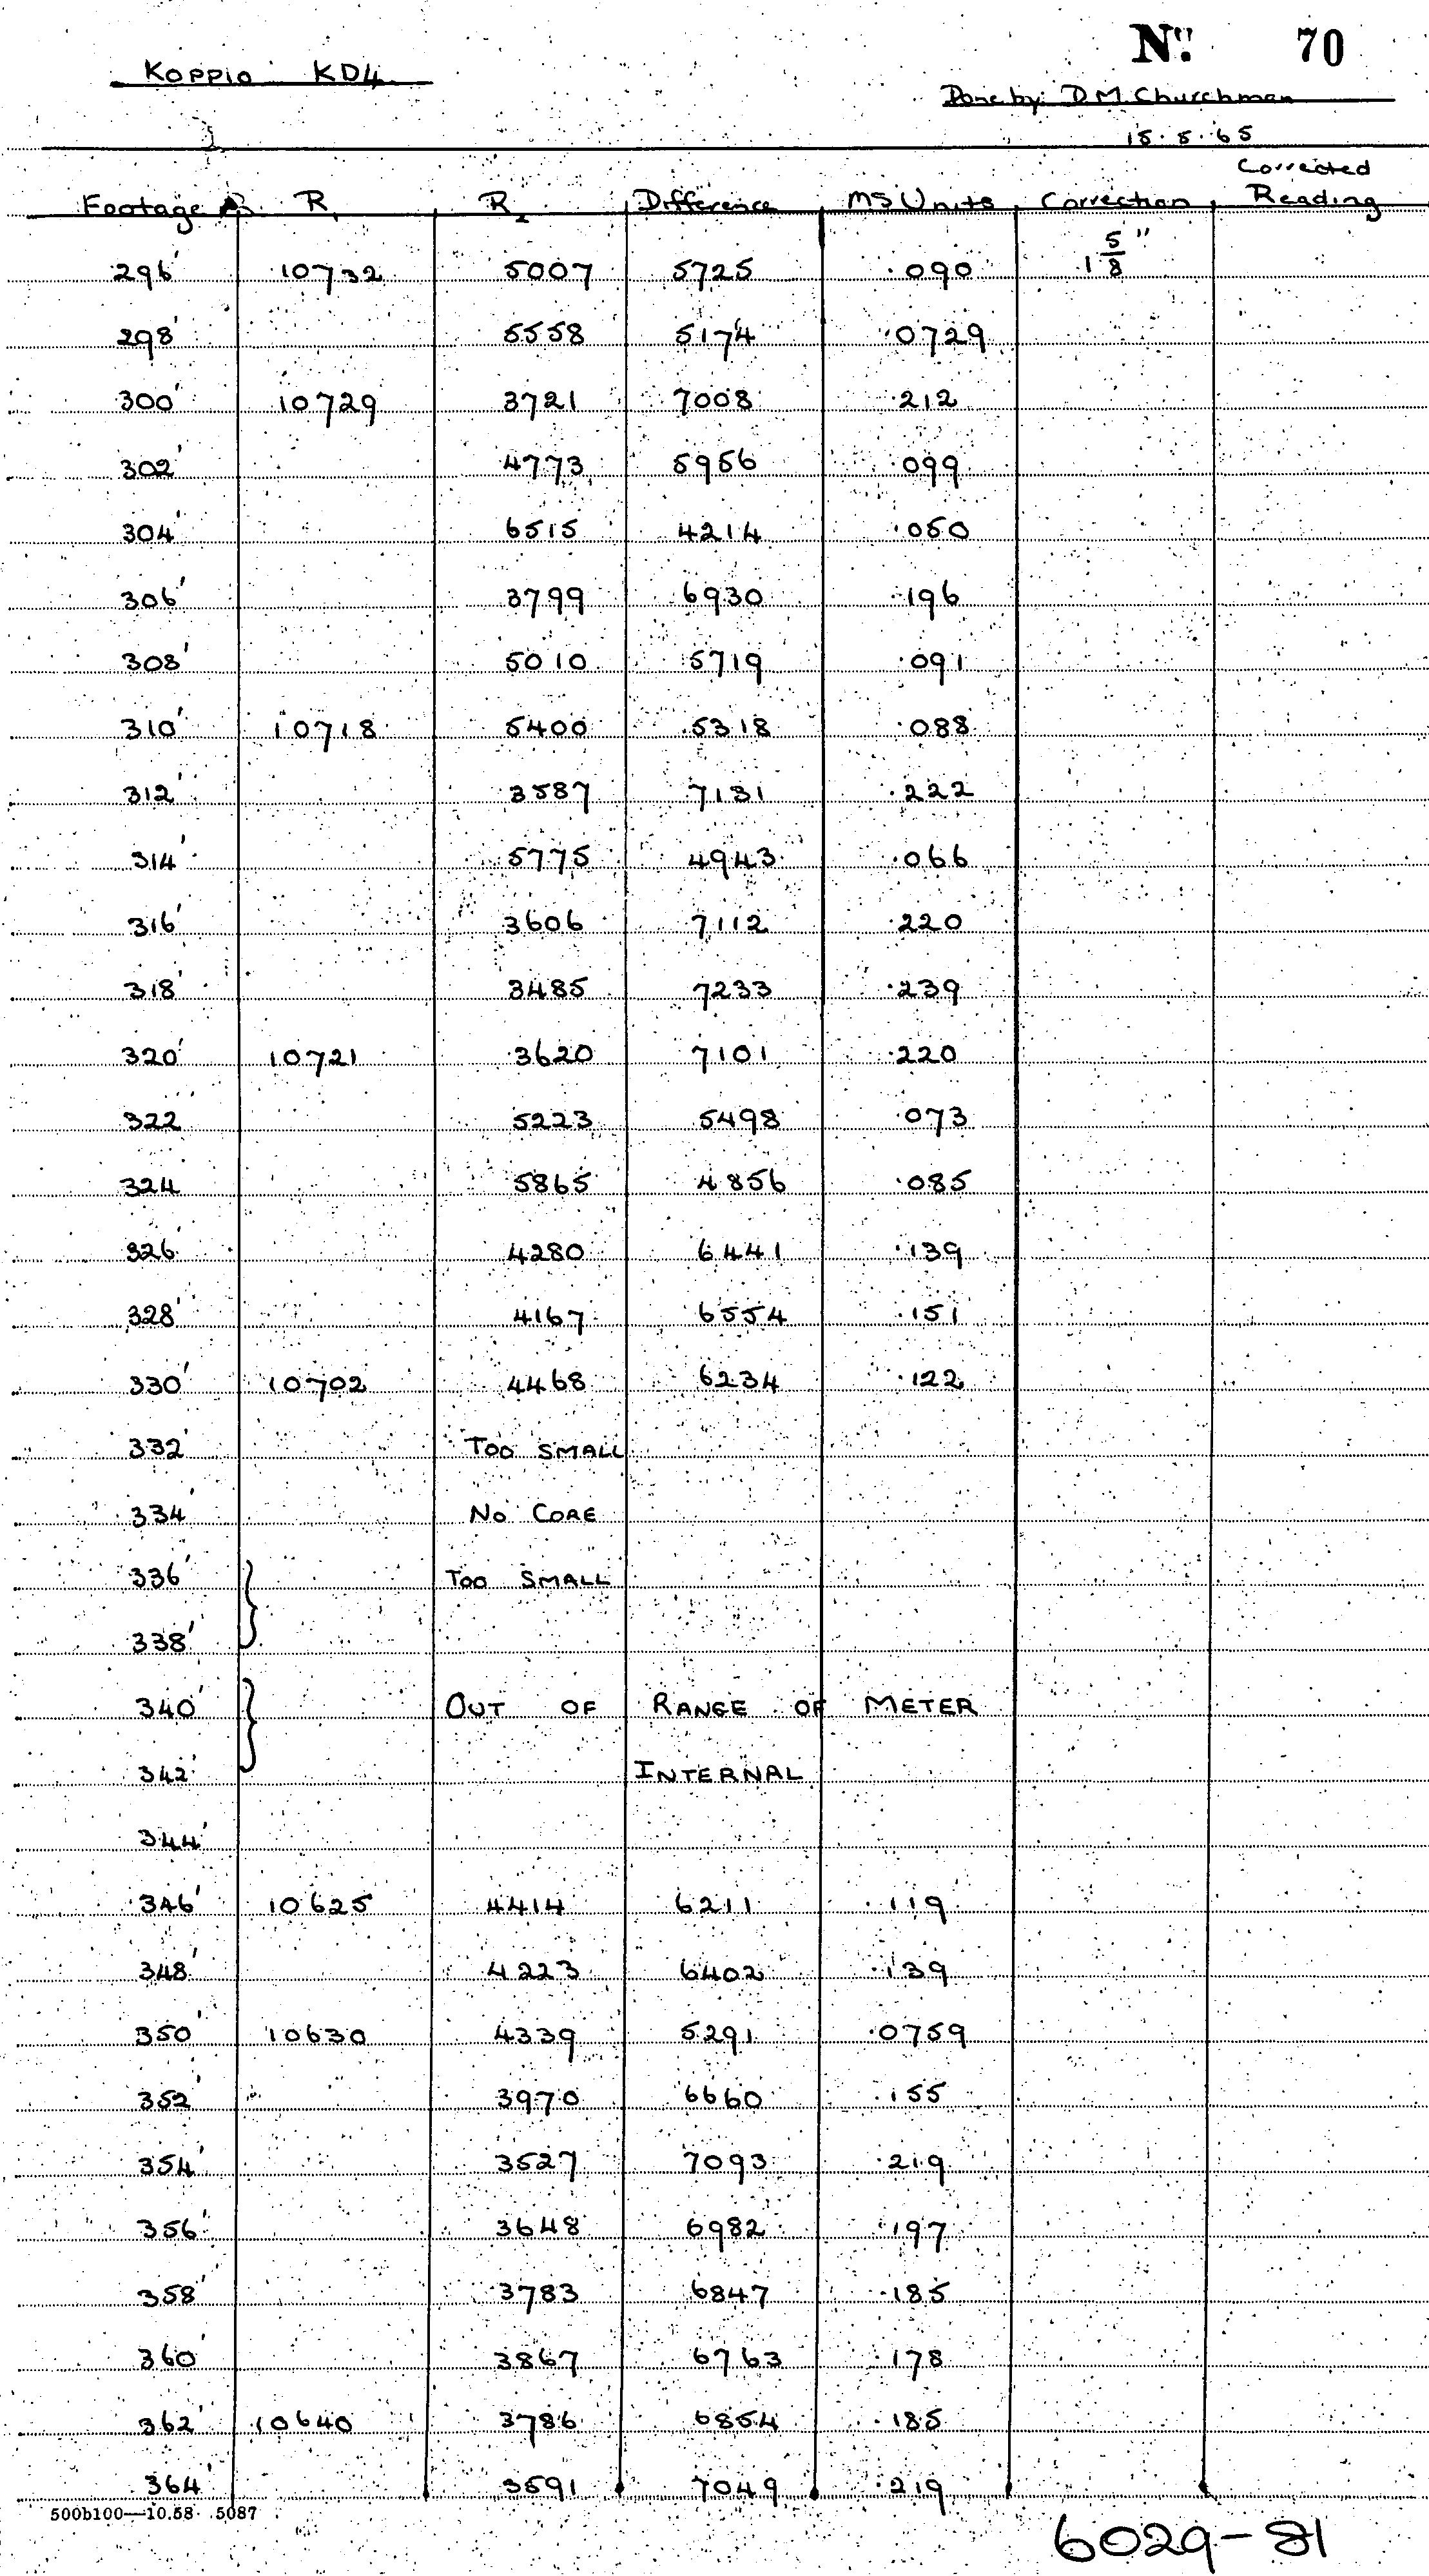 Nº 70
Koppio KD4
Done by: D M Churchman
15.5.65
Footage R₁ R₂ Difference MS Units Correction Corrected Reading
296' 10732 5007 5725 .090 1 5/8"
298' 5558 5174 .0729
300' 10729 3721 7008 .212
302' 4773 5956 .099
304' 6515 4214 .050
306' 3799 6930 .196
308' 5010 5719 .091
310' 10718 5400 5318 .088
312' 3587 7131 .222
314' 5775 4943 .066
316' 3606 7112 .220
318' 3485 7233 .239
320' 10721 3620 7101 .220
322 5223 5498 .073
324 5865 4856 .085
326 4280 6441 .139
328' 4167 6554 .151
330' 10702 4468 6234 .122
332' TOO SMALL
334' NO CORE
336' TOO SMALL
338'
340' OUT OF RANGE OF METER
342' INTERNAL
344'
346' 10625 4414 6211 .119
348' 4223 6402 .139
350' 10630 4339 5291 .0759
352' 3970 6660 .155
354' 3527 7093 .219
356' 3648 6982 .197
358' 3783 6847 .185
360' 3867 6763 .178
362' 10640 3786 6854 .185
364' 3591 7049 .219
500b100—10.58 5087
6029-81